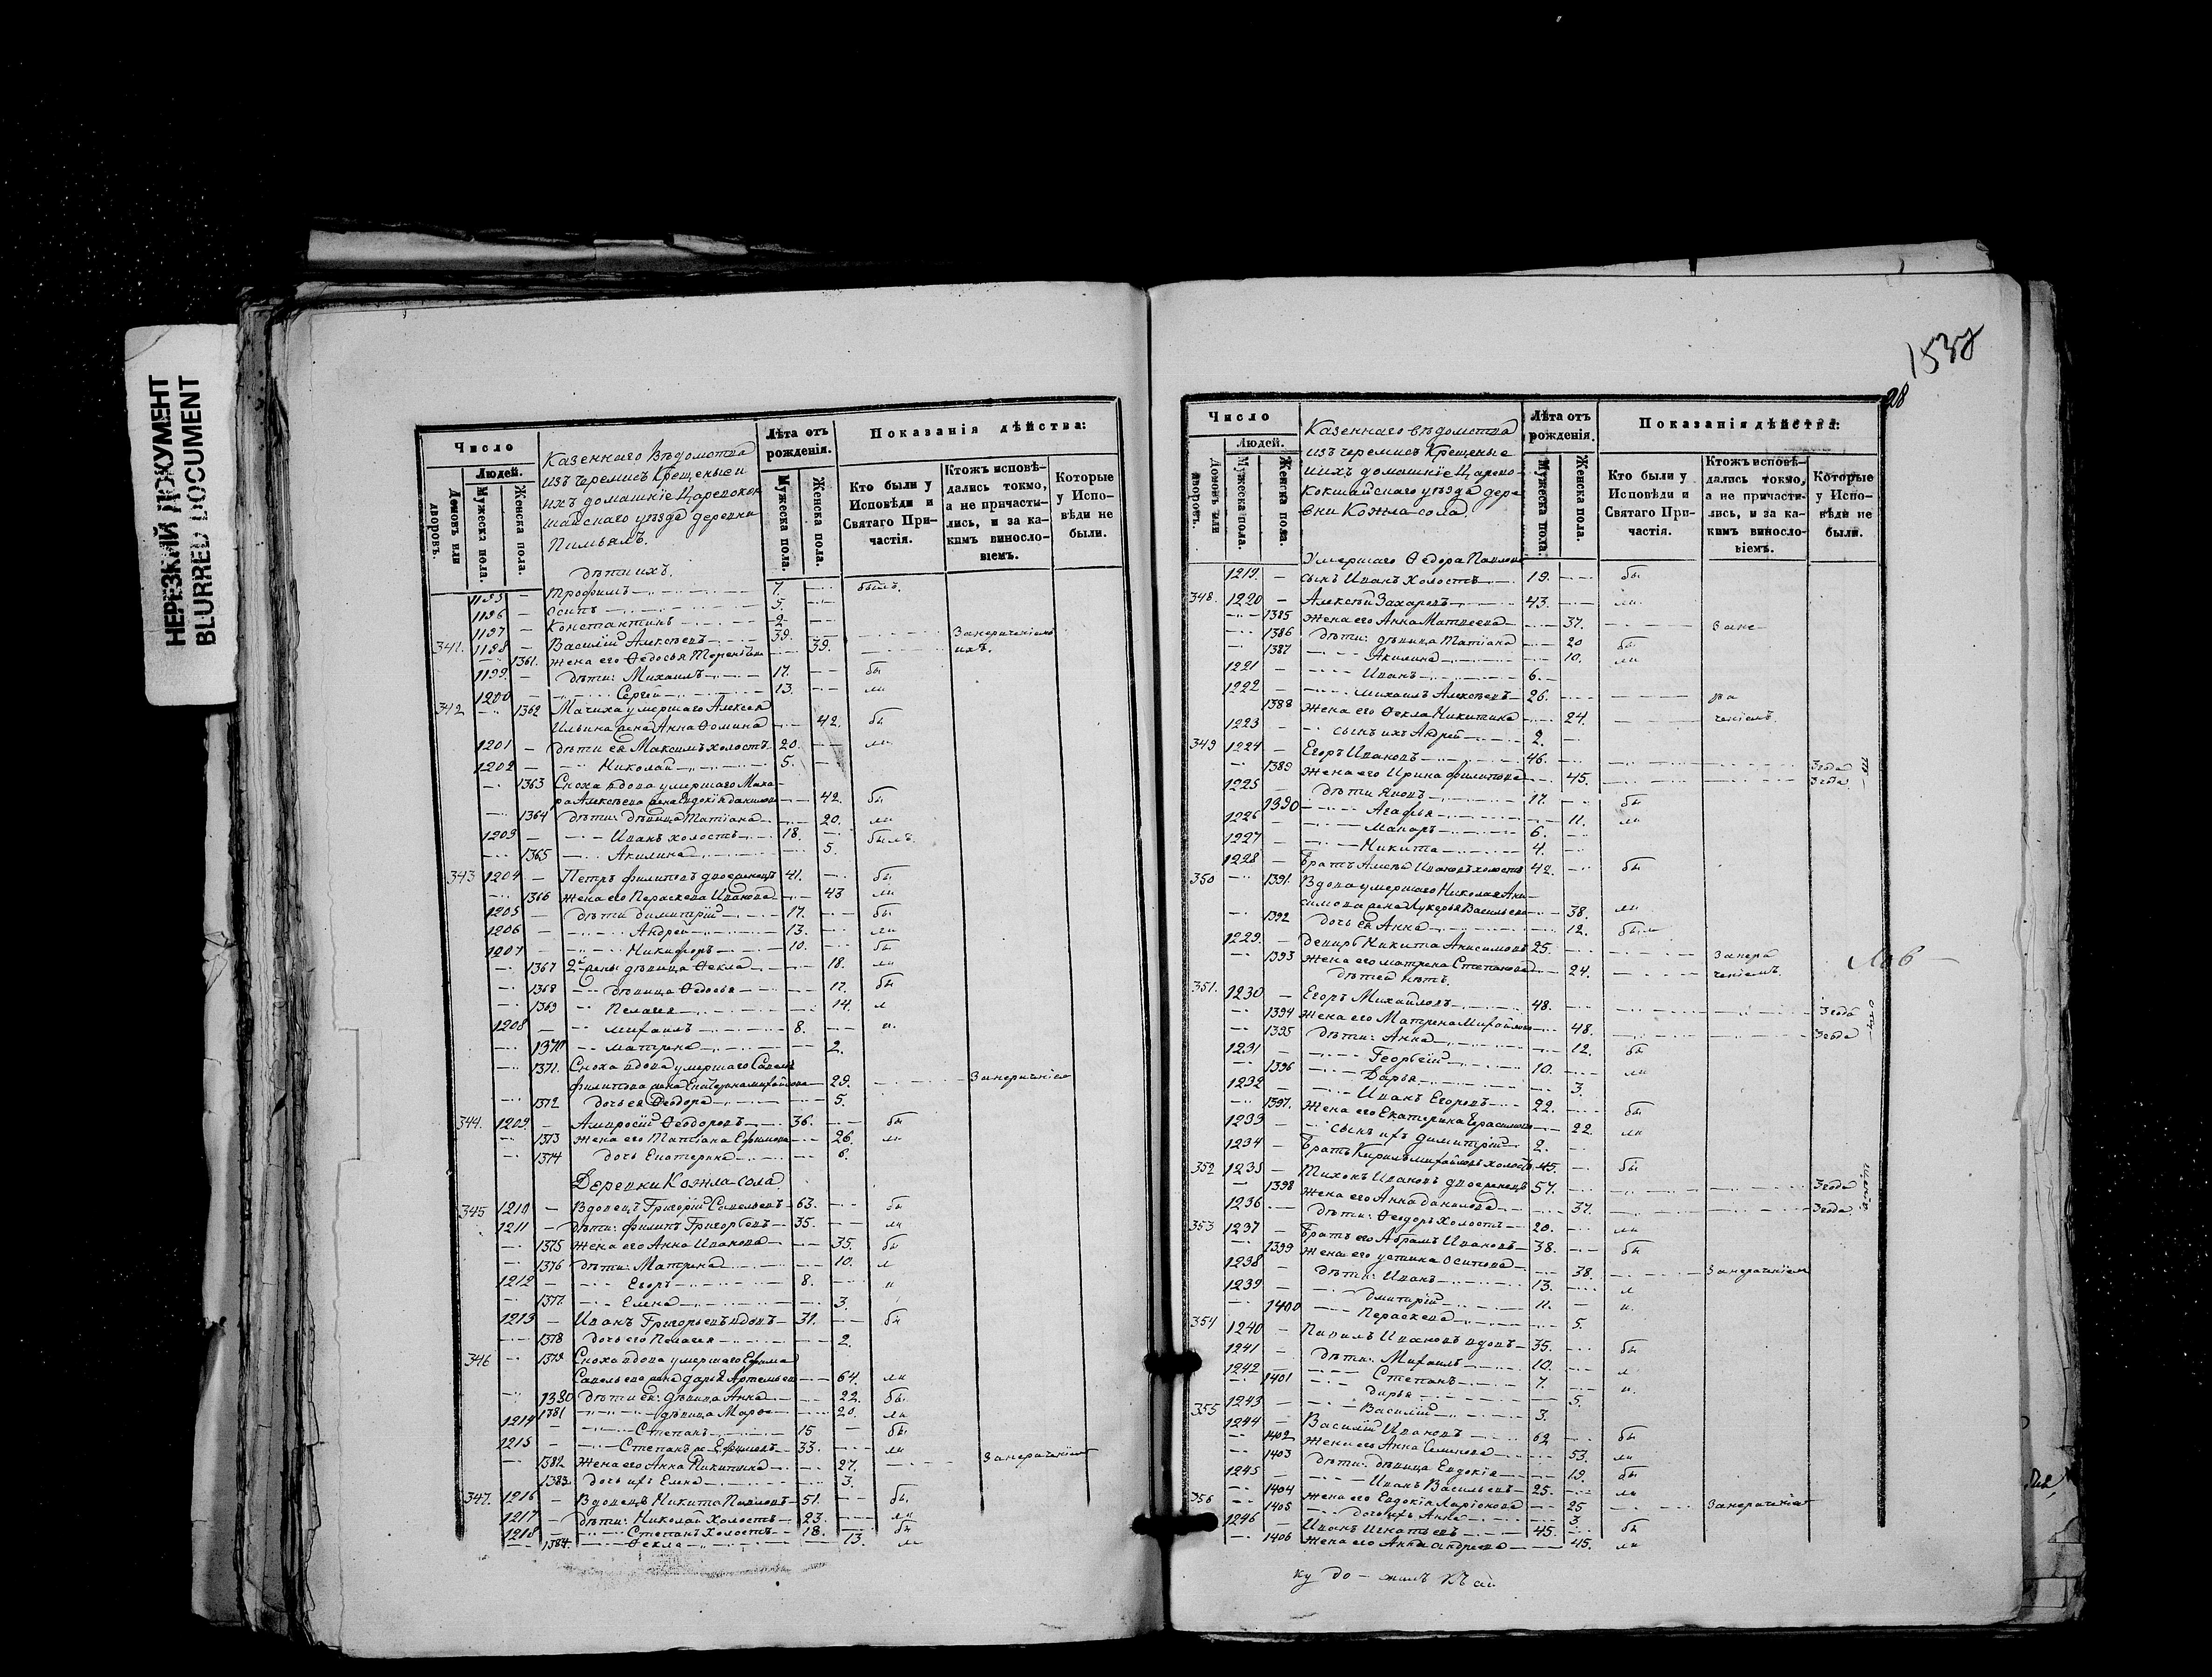 НЕРЕЗКИЙ ДОКУМЕНТ
BLURRED DOCUMENT
Число
Людей.
Домовъ или дворовъ.
Мужеска пола.
Женска пола.
Казеннаго Вѣдомства
изъ черемисъ Крещеные и
ихъ домашніе Царевокок
шайскаго уѣзда деревни
Лѣта отъ рожденія.
Мужеска пола.
Женска пола.
Показанія дѣйства:
Кто были у Исповѣди и Святаго Причастія.
Ктожъ исповѣдались токмо, а не причастились, и за какимъ винословіемъ.
Которые у Исповѣди не были.
дѣти ихъ.
1195 — Трофимъ 7. былъ.
1196 — Осипъ 5.
1197 — Константинъ 2
341. 1198 — Василій Алексѣевъ 39.
1361. жена его Ѳедосья 39. ихъ.
1199. — дѣти: Михаилъ 17. бы
1200 — Сергѣй 13. ли
342 1362 Мачиха умершаго Алексея
Ильина жена Анна Ѳомина 42. бы
1201 — дѣти ея Максимъ холостъ 20. ли
1202 — Николай 5.
1363 Сноха вдова умершаго
42. бы
1364 дѣти: дѣвица Татіана 20. ли
1203 — Иванъ холостъ 18. былъ.
1365 — Акилина 5.
343 1204 — Петръ Филиповъ двоеженецъ 41. бы
1366 жена его Параскева Иванова 43 ли
1205 — дѣти Димитрій 17. бы
1206 — Андрей 13. ли
1207 — Никифоръ 10. бы
1367 2й жены дѣвица Ѳекла 18. ли
1368 дѣвица Ѳедосья 17. бы
1369 Пелагея 14. л
1208 — Михаилъ 8. и.
1370 Матрена 2.
1371. Сноха вдова умершаго
Филипова жена Екатерина Михайлова 29.
1372 дочь ея Ѳеодора 5.
344. 1209. — Амвросій Ѳеодоровъ 36. бы
1373 жена его Татіана Ефимова 26. ли
1374 дочь Екатерина 6.
Деревни Кожла-сола.
345 1210 — Вдовецъ Григорій Савельевъ 63. бы
1211 — дѣти: Филипъ Григорьевъ 35. ли
1375 жена его Анна Иванова 35. бы
1376 дѣти: Матрена 10. л
1212 — Егоръ 8. и
1377. Елена 3.
1213 — Иванъ Григорьевъ вдовъ 31. бы
1378 дочь его Пелагея 2.
346 1379 Сноха вдова умершаго Ефима
Савельева жена Дарья 64. ли
1380 дѣти ея: дѣвица Анна 22. бы.
1381 дѣвица 20. ли
1214 — Степанъ 15 бы
1215 — Степанъ Ефимовъ 33. ли
1382 жена его Анна Никитина 27.
1383. дочь ихъ Елена 3.
347. 1216 — Вдовецъ Никита Павловъ 51. бы.
1217 — дѣти: Николай холостъ 23. ли
1218 — Степанъ холостъ 18. бы
1384 Ѳекла 13. ли
28
Число
Людей.
Домовъ или дворовъ.
Мужеска пола.
Женска пола.
Казеннаго вѣдомства
изъ черемисъ Крещеные
и ихъ домашніе Царево
кокшайскаго уѣзда дере
вни Кожла-сола.
Лѣта отъ рожденія.
Мужеска пола.
Женска пола.
Показанія дѣйства:
Кто были у Исповѣди и Святаго Причастія.
Ктожъ исповѣдались токмо, а не причастились, и за какимъ винословіемъ.
Которые у Исповѣди не были.
Умершаго Ѳедора Павлова
1219. — сынъ Иванъ холостъ 19. бы
348. 1220 — Алексѣй Захаровъ 43. ли.
1385 жена его Анна Матвеева 37.
1386 дѣти: дѣвица Татіана 20 бы
1387 Акилина 10. ли
1221 — Иванъ 6.
1222 — Михаилъ Алексѣевъ 26.
1388 жена его Ѳекла Никитина 24. ченіемъ.
1223 — сынъ ихъ Андрей 2.
349 1224 — Егоръ Ивановъ 46. 3 года
1389 жена его Ирина Филипова 45. 3 года
1225 — дѣти 17. бы
1390 Агафья 11. ли
1226 — Макаръ 6.
1227 — Никита 4.
1228 — Братъ Ивановъ холостъ 42. бы
350 1391. Вдова умершаго Николая Ани
симова жена Лукерья Васильева 38. ли
1392 дочь ея Анна 12. были
1229. — Никита Анисимовъ 25.
1393 жена его Матрена Степанова 24. ченіемъ.
дѣтей нѣтъ.
351. 1230 — Егоръ Михайловъ 48. 3 года
1394 жена его Матрена Михайлова 48. 3 года
1395 дѣти: Анна 12. бы
1231 — Георгій 10. ли
1396 Дарья 3.
1232 — Иванъ Егоровъ 22. бы
1397. жена его Екатерина Герасимова 22 ли
1233 — сынъ ихъ Димитрій 2.
1234 — Братъ Кирилъ Михайловъ холостъ 45. бы
352 1235 — Тихонъ Ивановъ двоеженецъ 57. 3 года
1398 жена его Анна Данилова 37. 3 года
1236. — дѣти: Ѳеодоръ холостъ 20. ли
353 1237 — Братъ его Абрамъ Ивановъ 38. бы
1399 жена его Устина Осипова 38.
1238 — дѣти: Иванъ 13. л
1239 — Дмитрій 11. и.
1400 Параскева 5.
354 1240 — Павилъ Ивановъ вдовъ 35. бы
1241 — дѣти: Михаилъ 10. л
1242 — Степанъ 7. и.
1401 Дарья 5.
1243 — Василій 3.
355 1244 — Василій Ивановъ 62 бы
1402 жена его Анна Семенова 53. ли
1403 дѣти: дѣвица Евдокія 19. бы
1245 — Иванъ Васильевъ 25. ли
1404 жена его Евдокія Ларіонова 25
1405 дочь ихъ Анна 3.
356 1246 — Иванъ Игнатьевъ 45. бы
1406 жена его Анна Андреева 45. ли